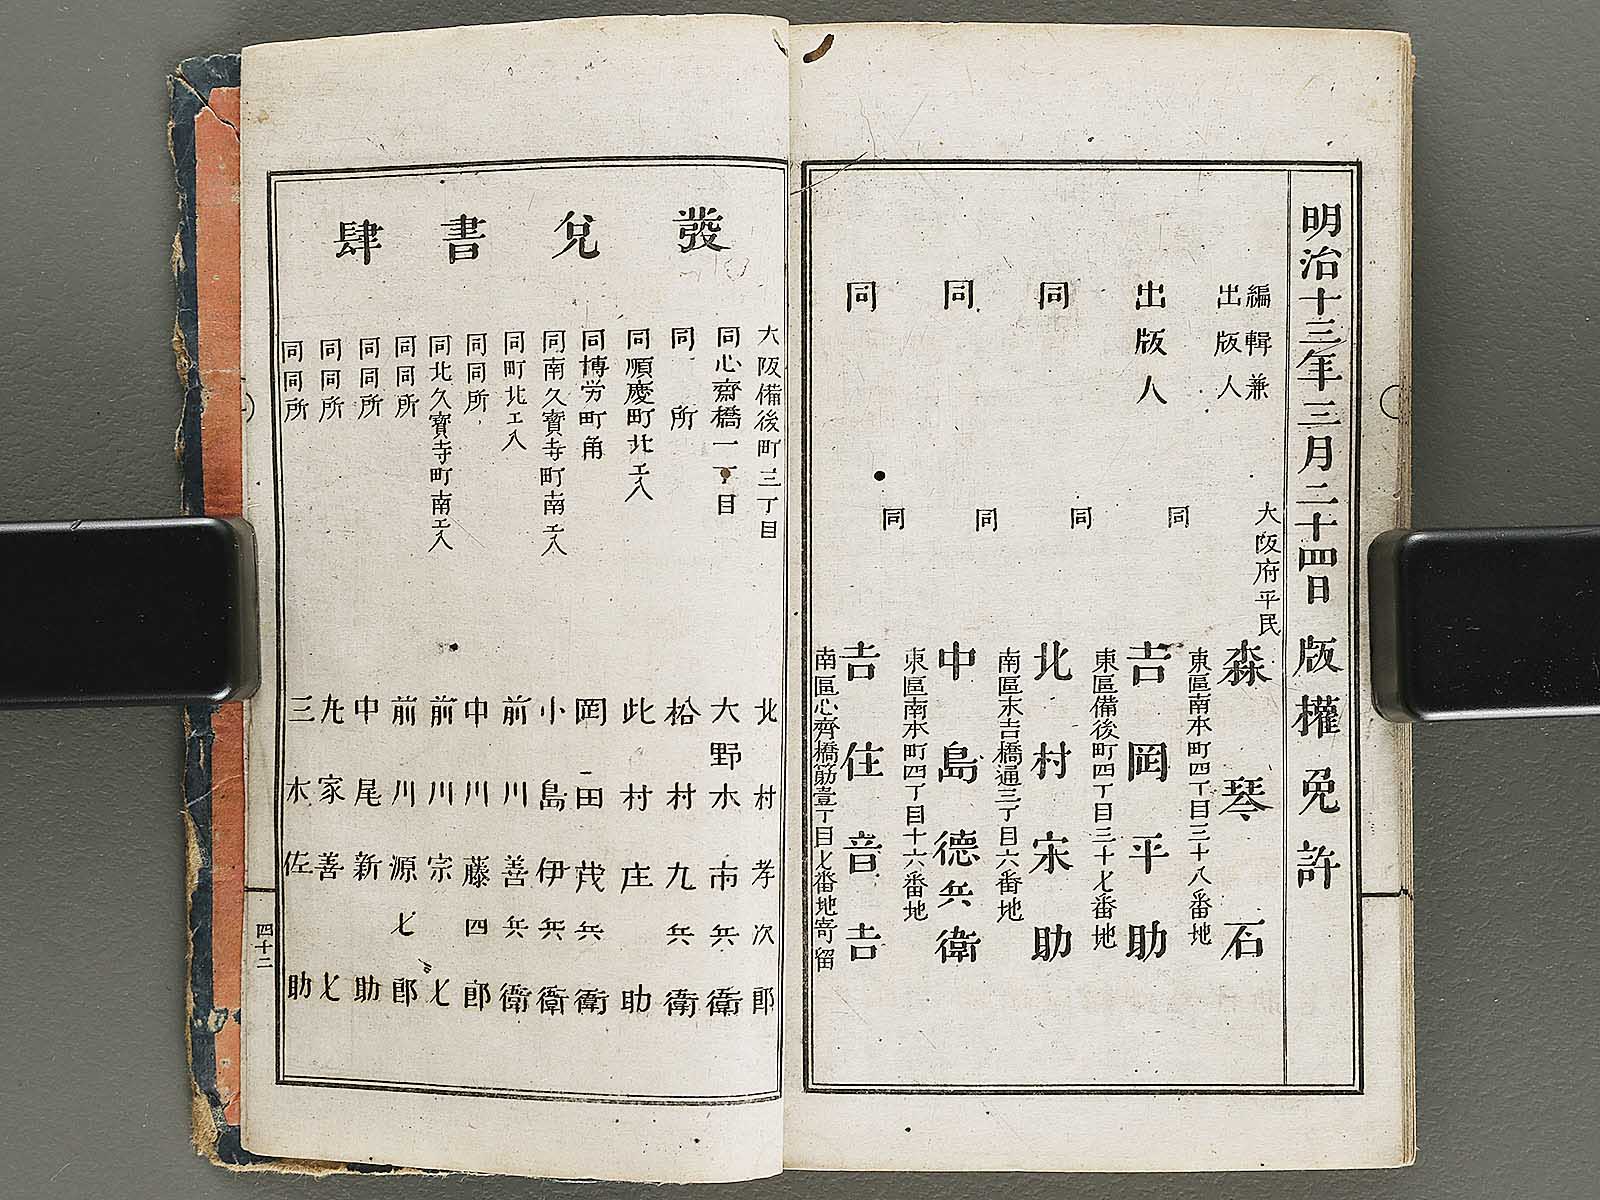 明治十三年三月二十四日版權免許
編輯兼
出版人
大阪府平民
森琴石
東區南本町四丁目三十八番地
出版人
同
吉岡平助
東區備後町四丁目三十七番地
同
同
北村宋助
南區末吉橋通三丁目六番地
同
同
中島德兵衛
東區南本町四丁目十六番地
同
同
吉住音吉
南區心齊橋筋壹丁目七番地寄留
發兌書肆
大阪備後町三丁目 北村孝次郎
同心齋橋一丁目 大野木市兵衛
同所 松村九兵衛
同順慶町北エ入 此村庄助
同博労町角 岡田茂兵衛
同南久寶寺町南エ入 小島伊兵衛
同町北エ入 前川善兵衛
同同所 中川藤四郎
同北久寶寺町南エ入 前川宗七
同同所 前川源七郎
同同所 中尾新助
同同所 九家善七
同同所 三木佐助
四十二